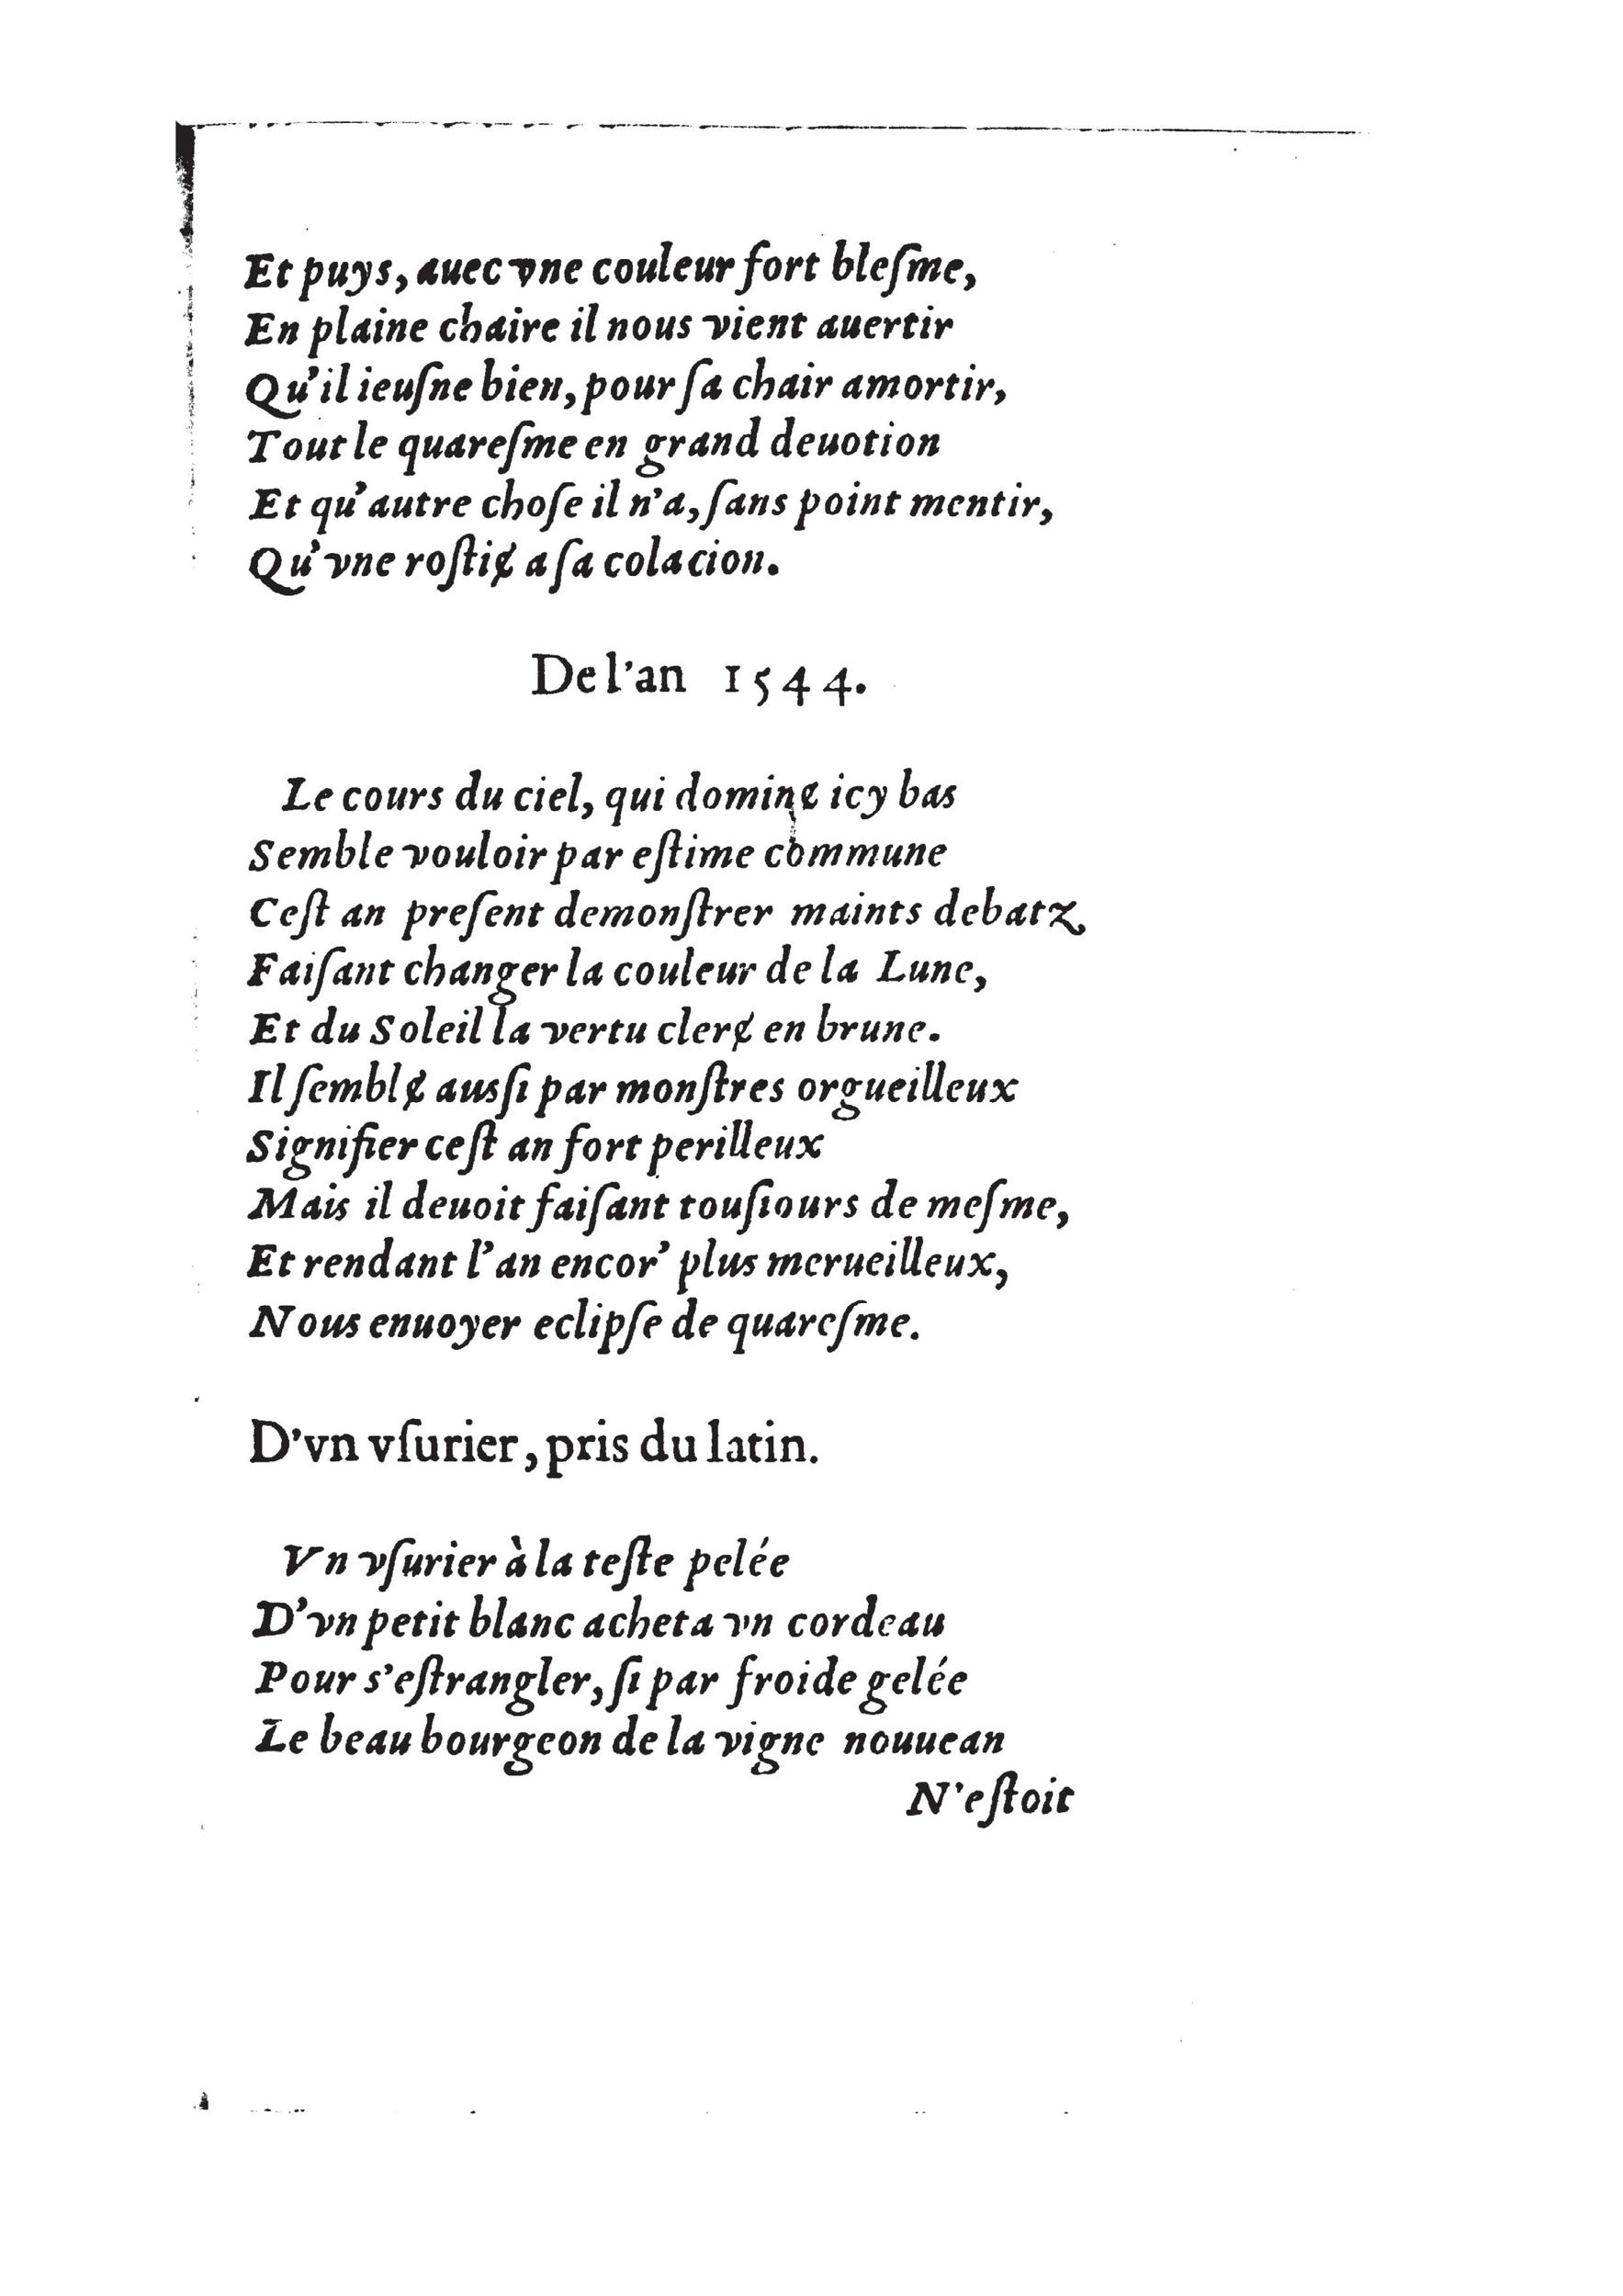 Et puys, auec vne couleur fort bleſme,
En plaine chaire il nous vient auertir
Qu'il ieuſne bien, pour ſa chair amortir,
Tout le quareſme en grand deuotion
Et qu'autre choſe il n'a, ſans point mentir,
Qu'vne roſtiɇ a ſa colacion.
De l'an 1544.
Le cours du ciel, qui dominɇ icy bas
Semble vouloir par eſtime commune
Ceſt an preſent demonſtrer maints debatz
Faiſant changer la couleur de la Lune,
Et du Soleil la vertu clerɇ en brune.
Il ſemblɇ ausſi par monſtres orgueilleux
Signifier ceſt an fort perilleux
Mais il deuoit faiſant touſiours de meſme,
Et rendant l'an encor' plus merueilleux,
Nous enuoyer eclipſe de quareſme.
D'vn vſurier, pris du latin.
Vn vſurier à la teſte pelée
D'vn petit blanc acheta vn cordeau
Pour s'eſtrangler, ſi par froide gelée
Le beau bourgeon de la vigne nouuean
N'eſtoit